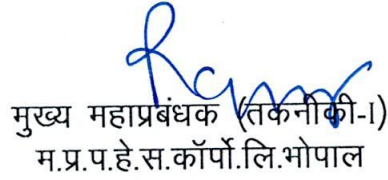 मुख्य महाप्रबंधक (तकनीकी-I)
म.प्र.प.हे.स.कॉर्पो.लि.भोपाल